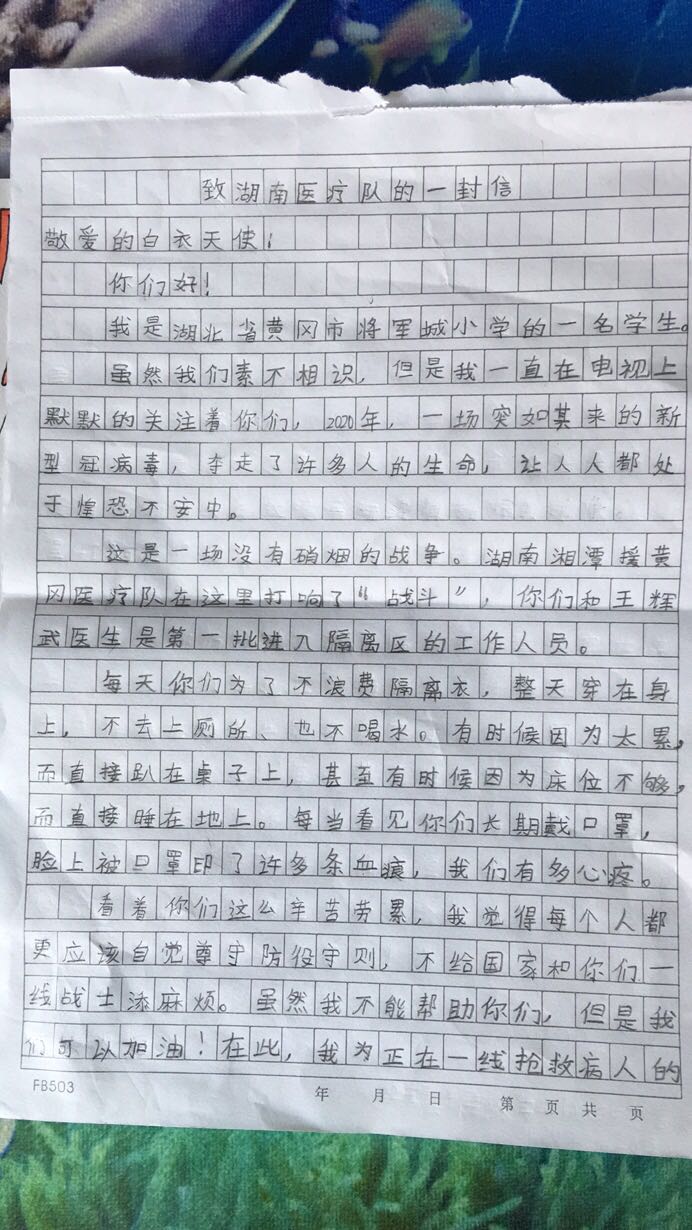 致湖南医疗队的一封信
敬爱的白衣天使：
你们好！
我是湖北省黄冈市将军城小学的一名学生。
虽然我们素不相识，但是我一直在电视上
默默的关注着你们，2020年，一场突如其来的新
型冠病毒，夺走了许多人的生命，让人人都处
于惶恐不安中。
这是一场没有硝烟的战争。湖南湘潭援黄
冈医疗队在这里打响了“战斗”，你们和王辉
武医生是第一批进入隔离区的工作人员。
每天你们为了不浪费隔离衣，整天穿在身
上，不去上厕所、也不喝水。有时候因为太累，
而直接趴在桌子上，甚至有时候因为床位不够，
而直接睡在地上。每当看见你们长期戴口罩，
脸上被口罩印了许多条血痕，我们有多心疼。
看着你们这么辛苦劳累，我觉得每个人都
更应该自觉尊守防役守则，不给国家和你们一
线战士添麻烦。虽然我不能帮助你们，但是我
们可以加油！在此，我为正在一线抢救病人的
FB503
年 月 日 第 页 共 页